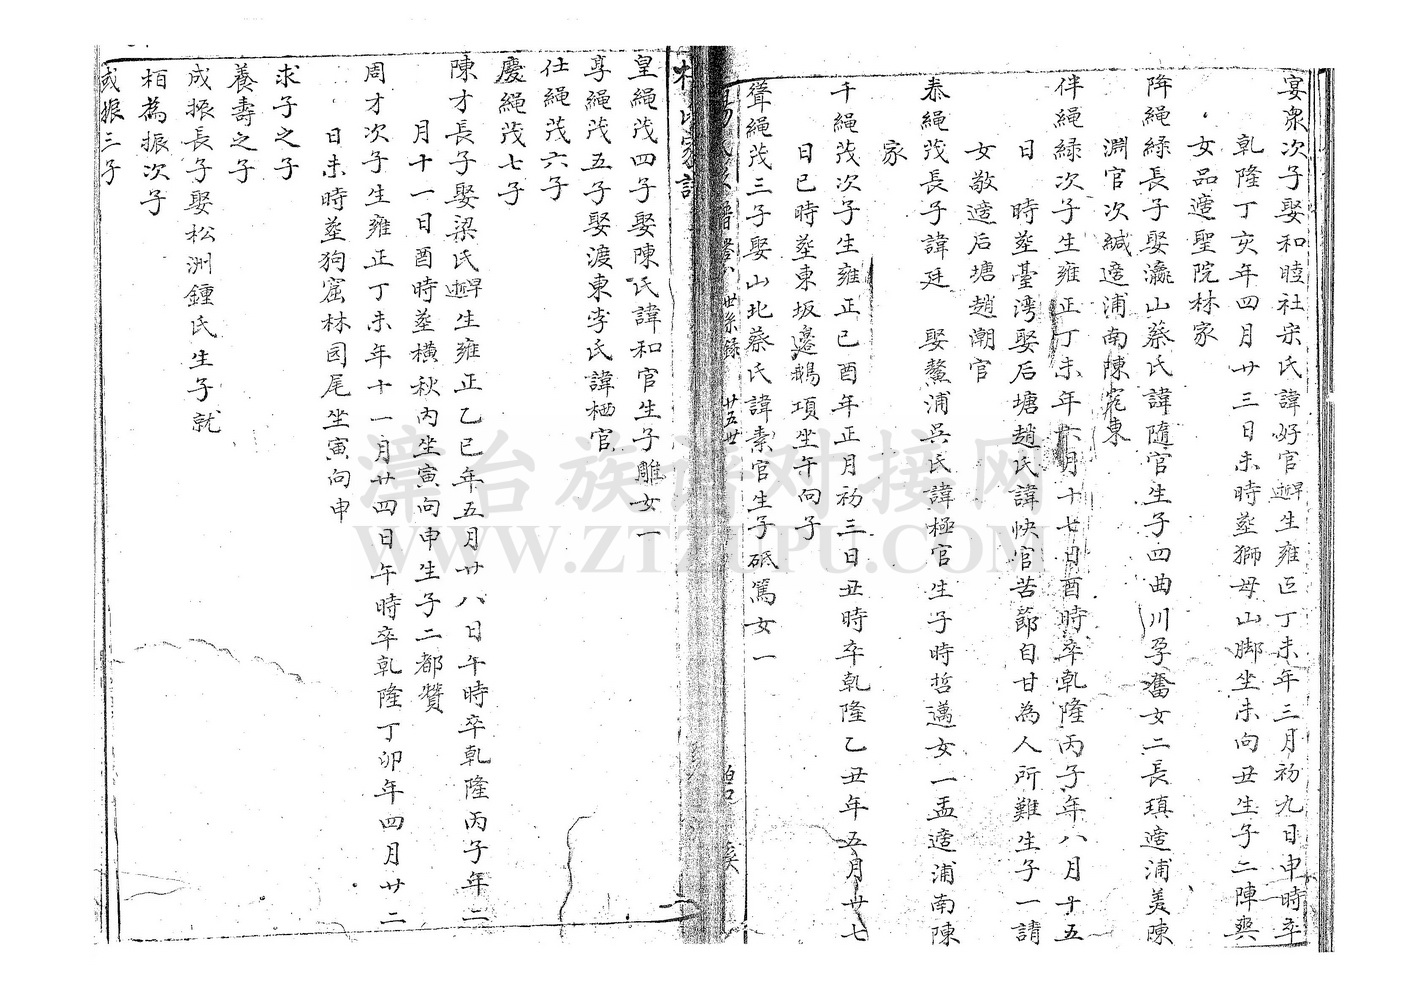 宴衆次子娶和睦社宋氏諱好官生雍正丁未年三月初九日申時卒
乾隆丁亥年四月廿三日未時塟獅母山脚坐未向丑生子二陣奭
女品適聖院林家
陣繩緑長子娶瀛山蔡氏諱隨官生子四曲川孕奮女二長瑱適浦美陳
淵官次緘適浦南陳寵東
伴繩緑次子生雍正丁未年六月十七日酉時卒乾隆丙子年八月十五
日 時塟臺湾娶后塘趙氏諱快官苦節自甘為人所難生子一請
女敬適后塘趙潮官
泰繩茂長子諱廷 娶鰲浦吳氏諱極官生子時哲邁女一孟適浦南陳
家
千繩茂次子生雍正己酉年正月初三日丑時卒乾隆乙丑年五月廿七
日巳時塟東坂邉鵝項坐午向子
聳繩茂三子娶山北蔡氏諱素官生子砥篤女一
世系錄 廿五世
皇繩茂四子娶陳氏諱和官生子雕女一
享繩茂五子娶渡東李氏諱栖官
仕繩茂六子
慶繩茂七子
陳才長子娶梁氏生雍正乙巳年五月廿八日午時卒乾隆丙子年二
月十一日酉時塟橫秋内坐寅向申生子二都贊
周才次子生雍正丁未年十一月廿四日午時卒乾隆丁卯年四月廿二
日未時塟狗窟林园尾坐寅向申
求子之子
養壽之子
成振長子娶松洲鍾氏生子就
栢為振次子
或振三子
漳台族谱对接网
WWW.ZTZUPU.COM